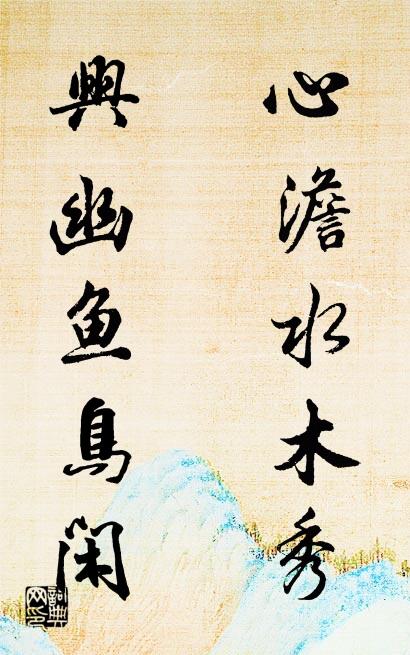 心澹水木秀
興幽魚鳥閑